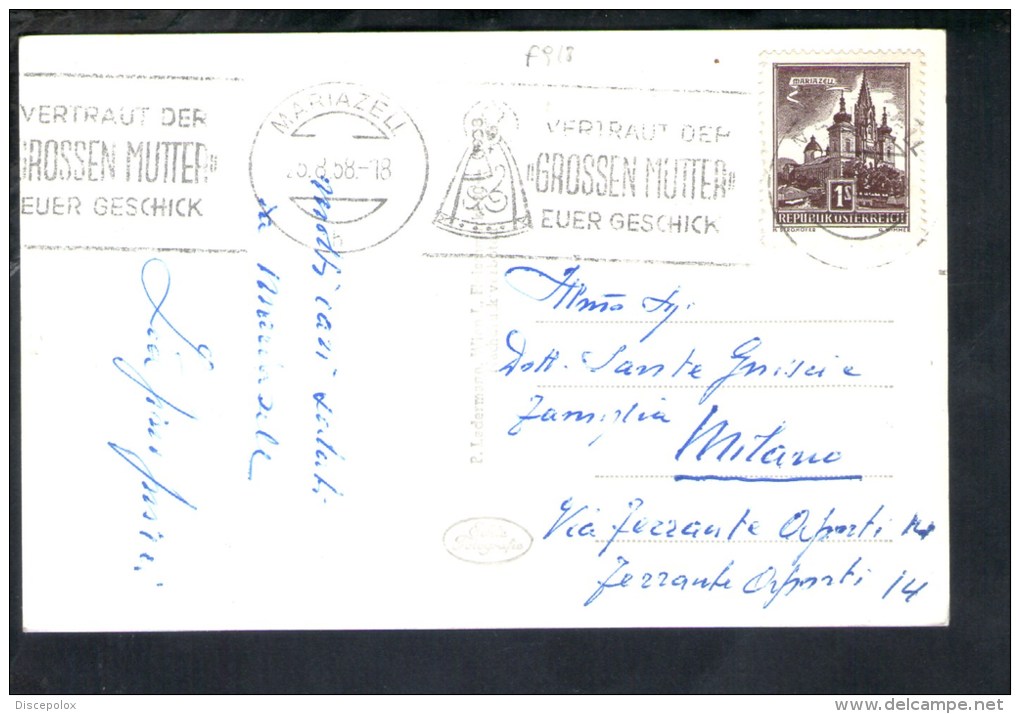 F918
VERTRAUT DER
"GROSSEN MUTTER"
EUER GESCHICK
MARIAZELL
25.8.58.-18
VERTRAUT DER
"GROSSEN MUTTER"
EUER GESCHICK
MARIAZELL
1S
REPUBLIK ÖSTERREICH
Molti cari saluti
da Mariazell
P. Ledermann, Wien I,
Dott. Sante
Famiglia
Milano
Via Ferrante Aporti 14
Ferrante Aporti 14
Discepolox
delcampe.net